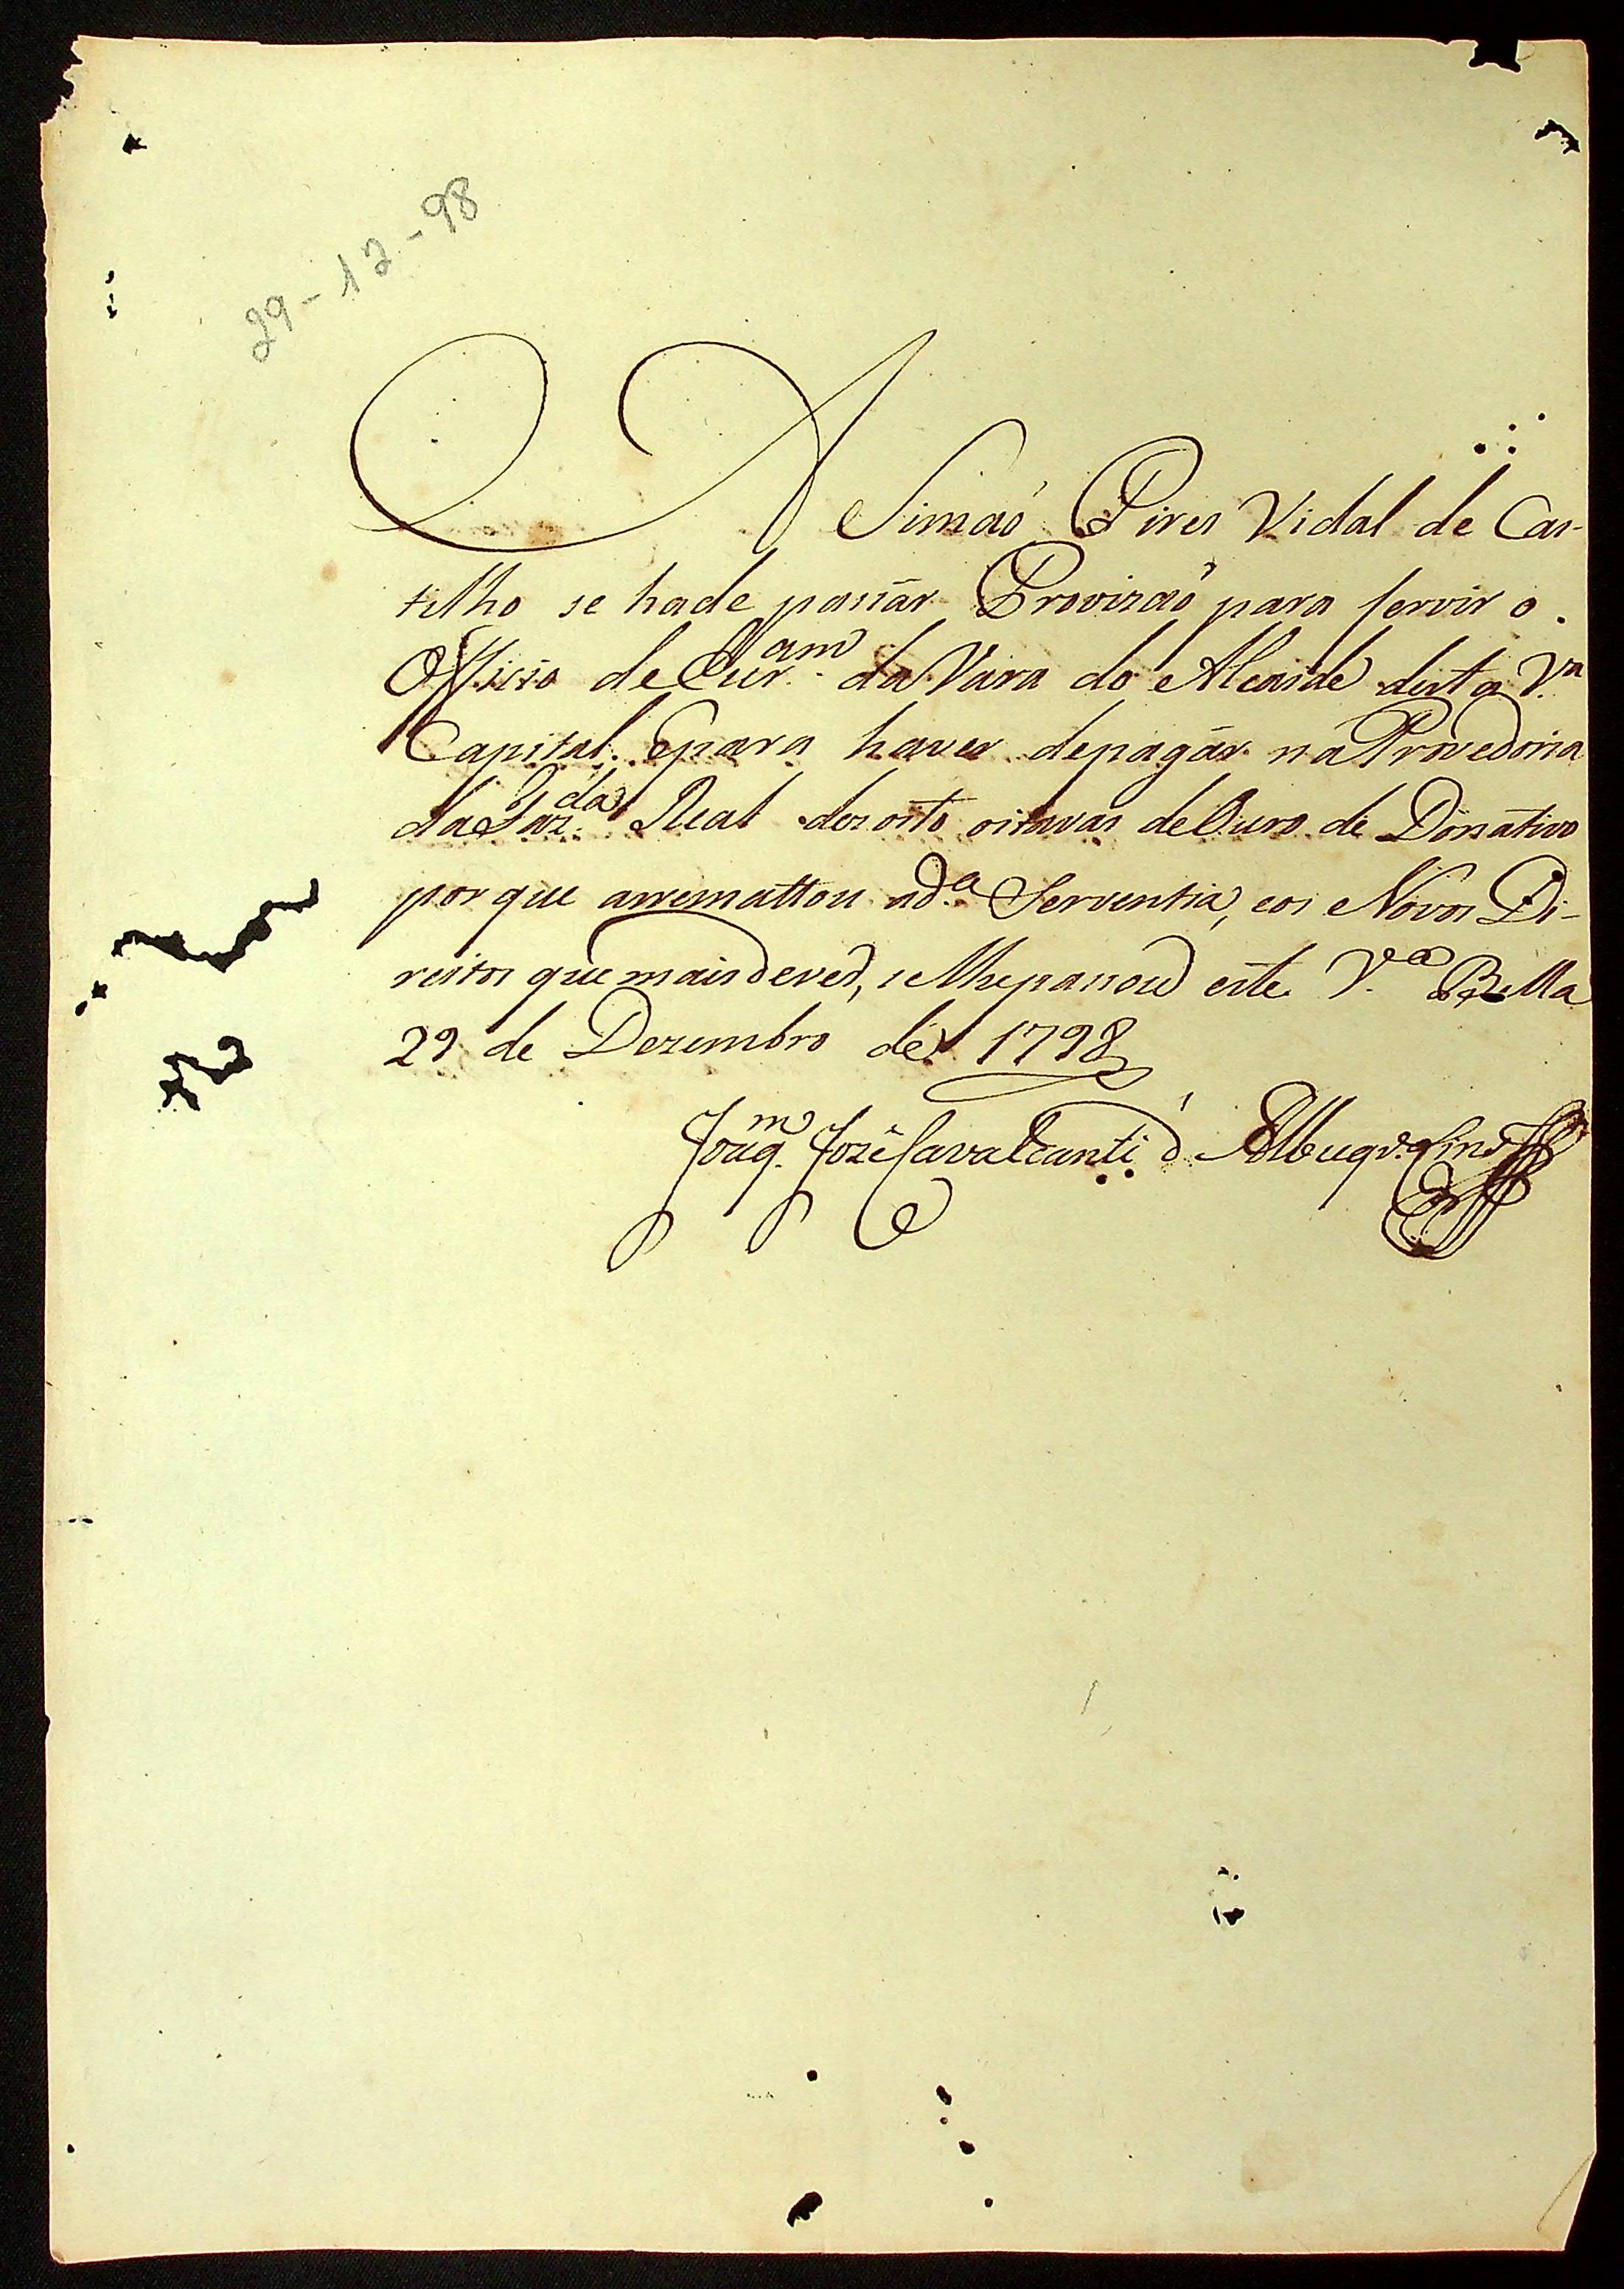 29-12-98
A Simaõ Pires Vidal de Cas-
tilho se hade passar Provizaõ para servir o
Officio de Escr.am da Vara do Alcaide desta V.a
Capital, epara haver depagár na Provedoria
da Faz.da Real dezoito oitavas de Ouro de Donativo
por que arremattou ad.a Serventia, eos Novos Di-
reitos que mais dever, selhe passou este. V.a Bella
29 de Dezembro de 1798
Joaq.m José Cavalcanti d'Albuq.e Lins